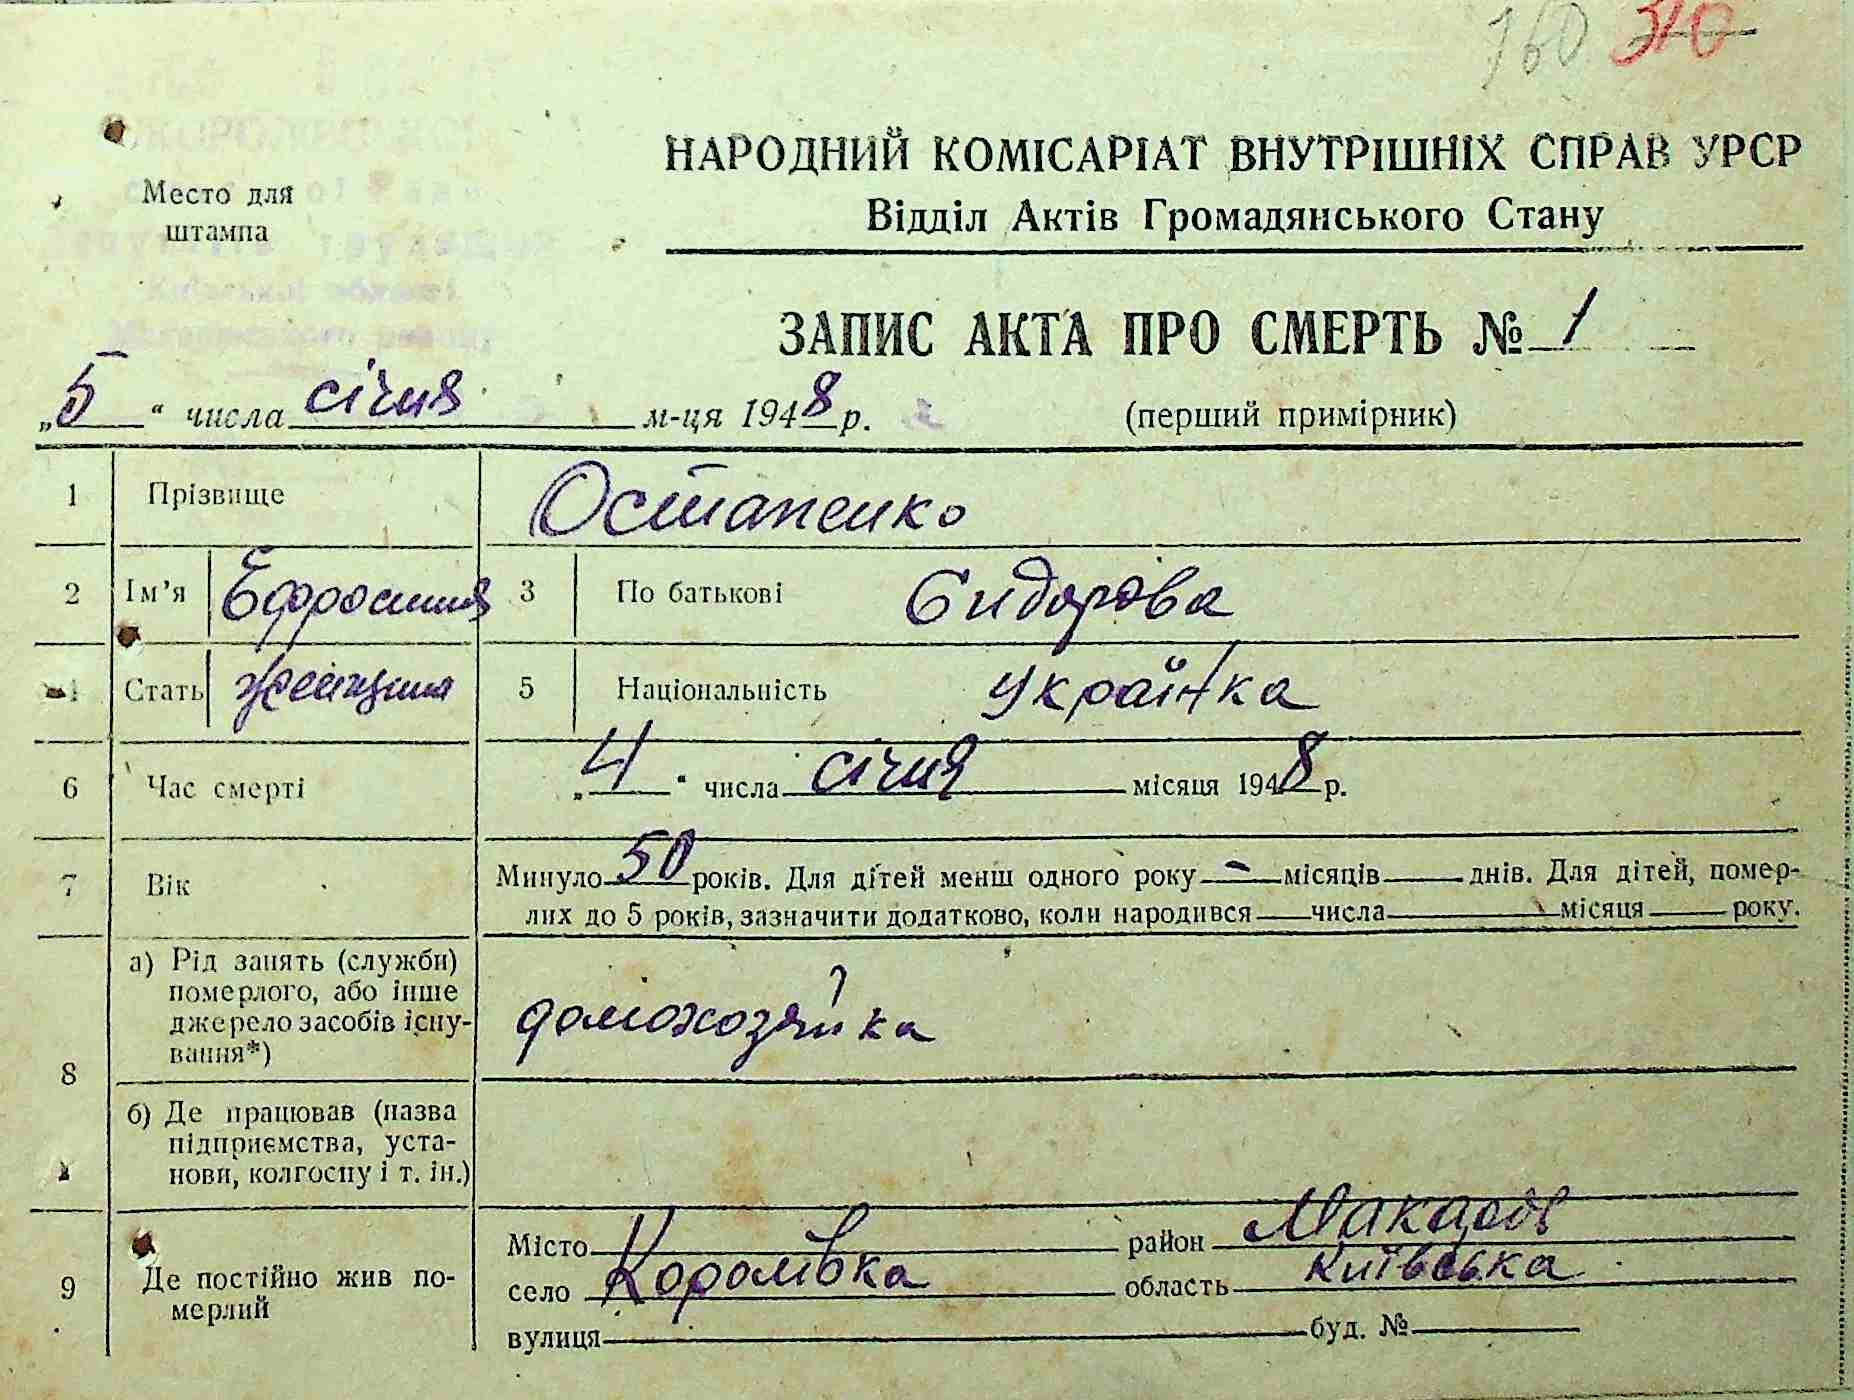 760 310
Место для
штампа
НАРОДНИЙ КОМІСАРІАТ ВНУТРІШНІХ СПРАВ УРСР
Відділ Актів Громадянського Стану
ЗАПИС АКТА ПРО СМЕРТЬ № 1
„5“ числа січня м-ця 1948 р.
(перший примірник)
1 Прізвище Остапенко
2 Ім'я Ефросиния 3 По батькові Сидорова
4 Стать женщина 5 Національність українка
6 Час смерті „4“ числа січня місяця 1948 р.
7 Вік Минуло 50 років. Для дітей менш одного року - місяців днів. Для дітей, помер-
лих до 5 років, зазначити додатково, коли народився числа місяця року.
8 а) Рід занять (служби)
померлого, або інше
джерело засобів існу-
вання*)
домохозяйка
б) Де працював (назва
підприємства, уста-
нови, колгоспу і т. ін.)
9 Де постійно жив по-
мерлий
Місто район Макарів
село Королівка область Київська
вулиця буд. №